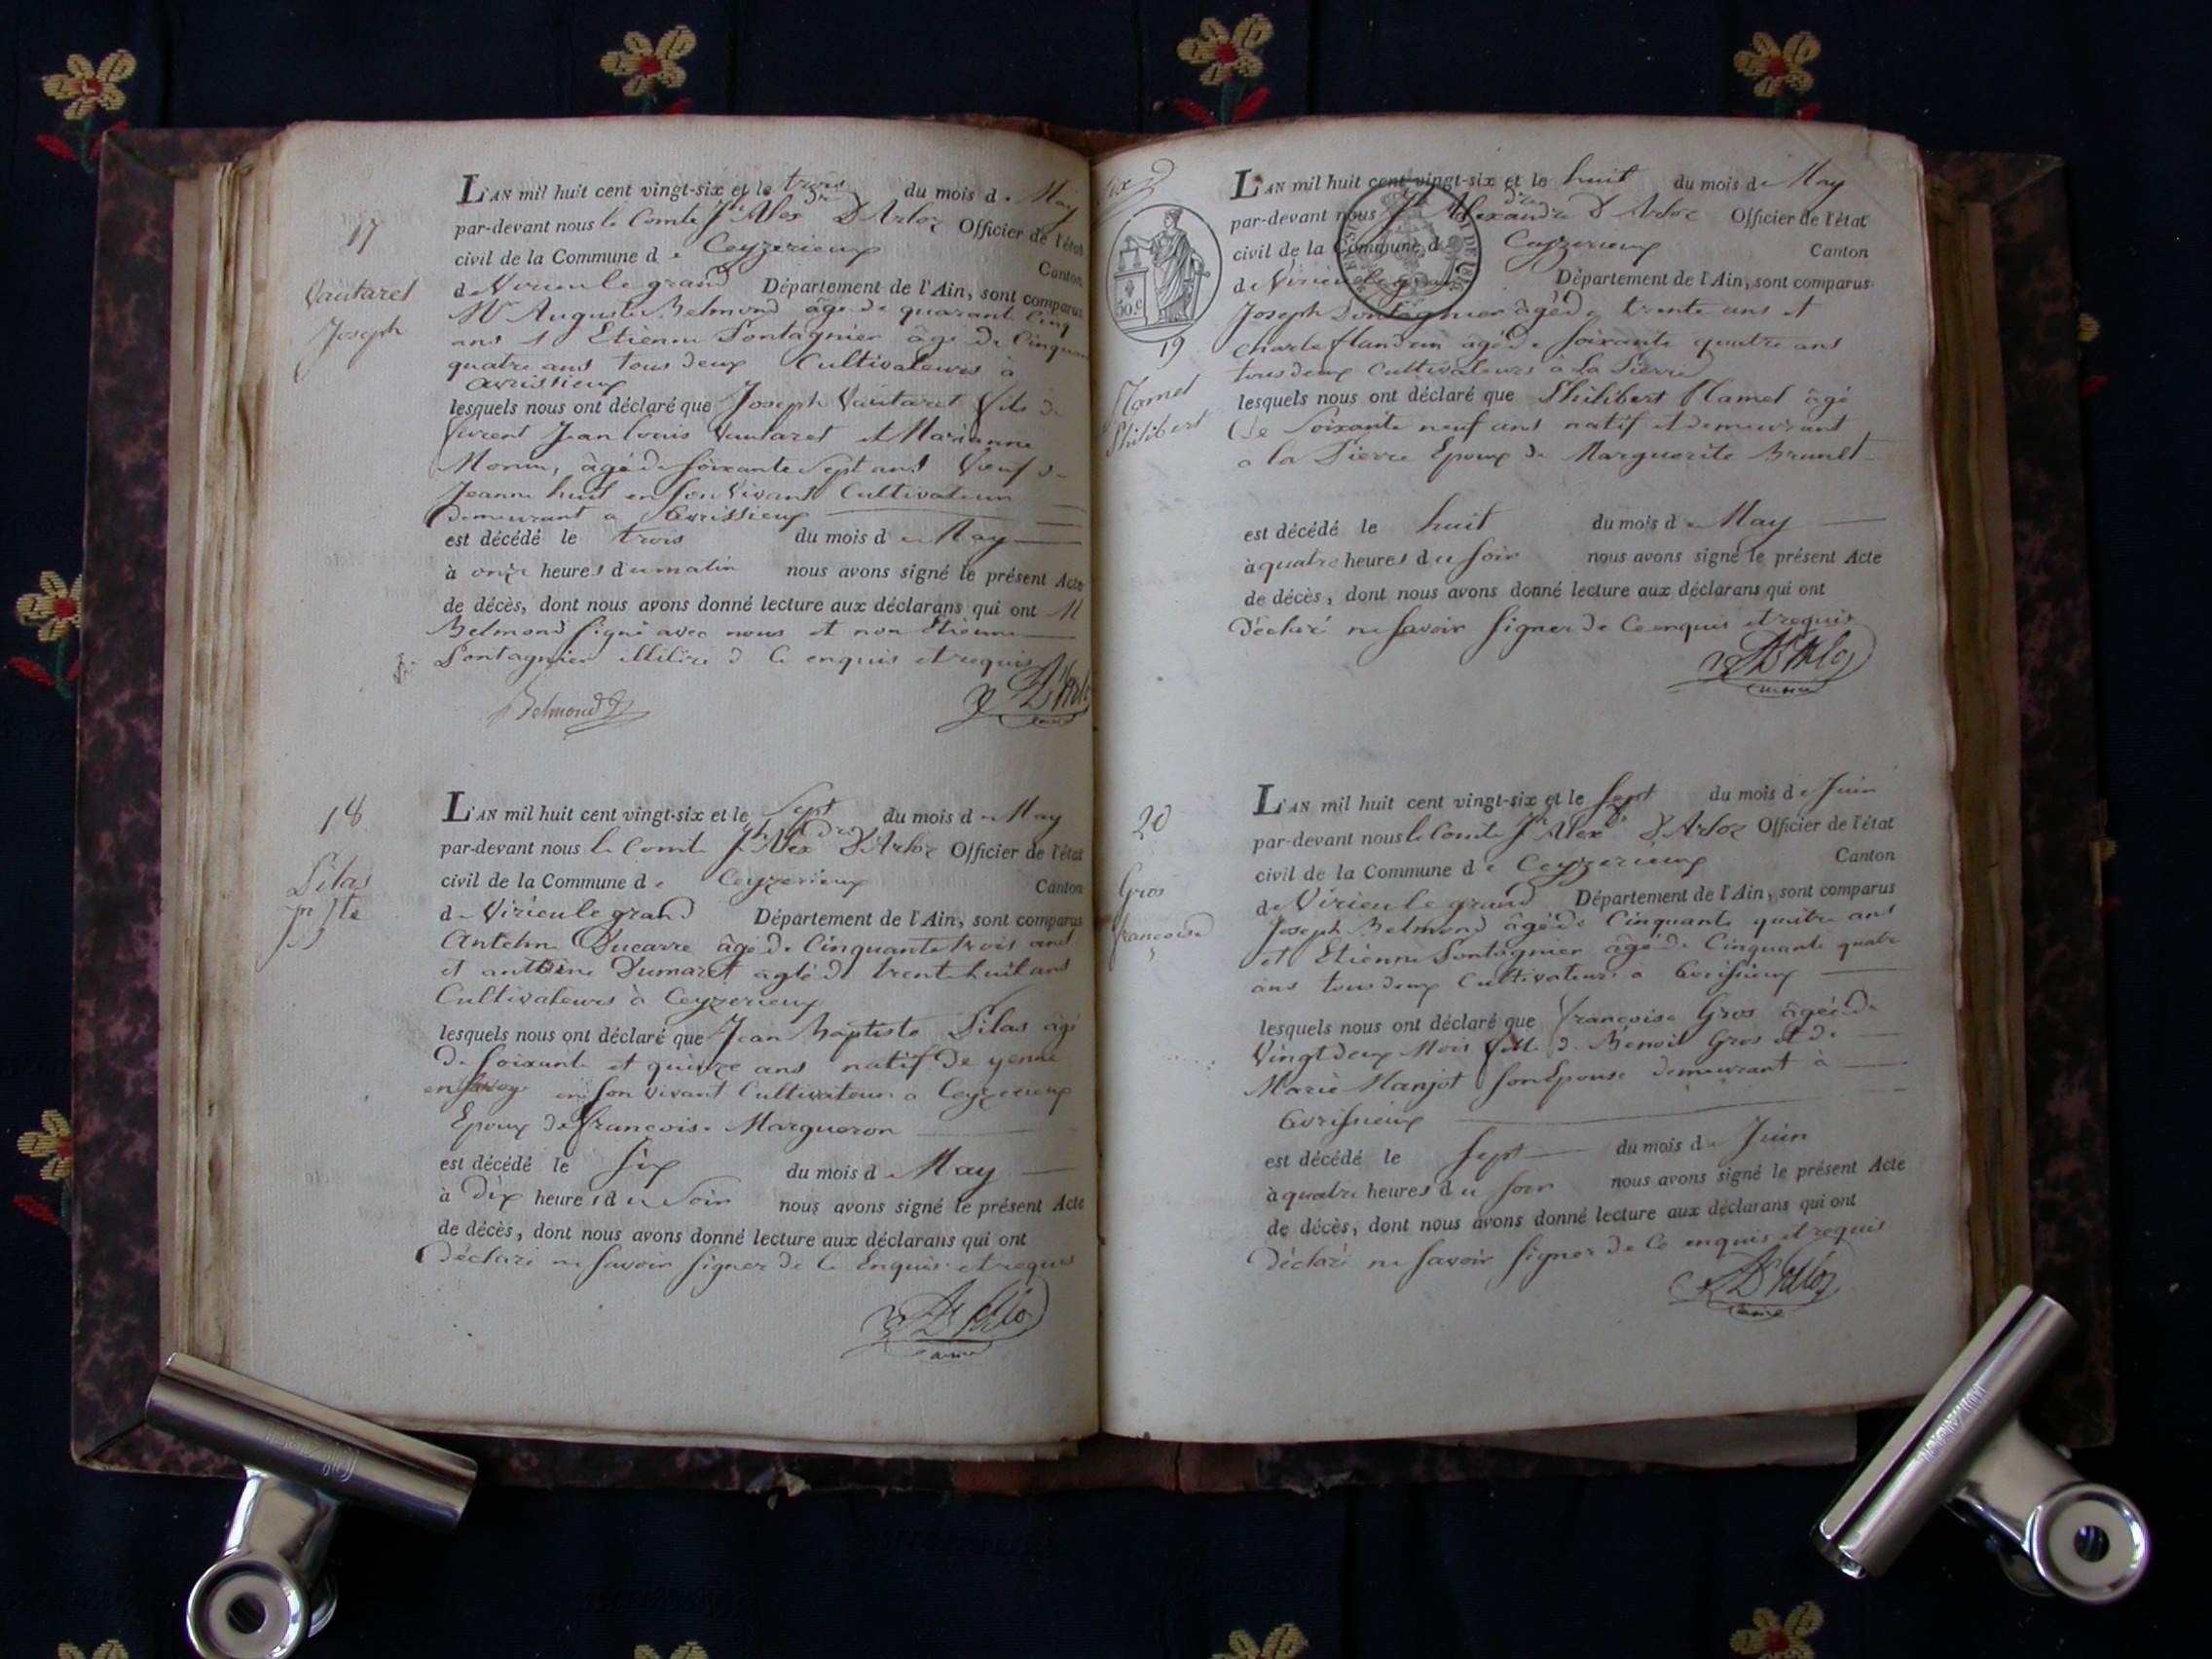 17
Vautaret
Joseph
L'AN mil huit cent vingt-six et le trois du mois de May
par-devant nous le Comte Jh Alexdre D'Arloz Officier de l'état
civil de la Commune de Ceyzerieux Canton
de Virieu le grand Département de l'Ain, sont comparus
Mr Auguste Belmond âgé de quarant Cinq
ans et Etienne Pontagnier âgé de Cinquante
quatre ans tous deux Cultivateurs à
avrissieux
lesquels nous ont déclaré que Joseph Vautaret fils de
furent Jean Louis Vautaret et Marianne
Morin, âgé de soixante Sept ans Veuf de
Jeanne huit en son Vivant Cultivateur
demeurant a avrissieux
est décédé le trois du mois de May
à onze heures du matin nous avons signé le présent Acte
de décès, dont nous avons donné lecture aux déclarans qui ont M
Belmond signé avec nous et non Etienne
Pontagnier illiliré de Ce enquis et requis
Belmond
D'Arloz
18
Pilas
Jn Bte
L'AN mil huit cent vingt-six et le Sept du mois de May
par-devant nous le Comte Jh Alexdre D'Arloz Officier de l'état
civil de la Commune de Ceyzerieux Canton
de Virieu le grand Département de l'Ain, sont comparus
Antelme Ducarre âgé de Cinquante trois ans
et antoine Dumaret âgé de trente huit ans
Cultivateurs à Ceyzerieux
lesquels nous ont déclaré que Jean Baptiste Pilas âgé
de soixante et quinze ans natif de yenne
en savoye en son vivant Cultivateur a Ceyzerieux
Epoux de francoise Margueron
est décédé le six du mois de May
à Dix heures du Soir nous avons signé le présent Acte
de décès, dont nous avons donné lecture aux déclarans qui ont
Déclaré ne savoir signer de Ce Enquis et requis
D'Arloz
six
50 c
19
Hamel
Philibert
L'AN mil huit cent vingt-six et le huit du mois de May
par-devant nous Jh Alexandre D'Arloz Officier de l'état
civil de la Commune de Ceyzerieux Canton
de Virieu le grand Département de l'Ain, sont comparus
Joseph Pontagnier âgé de trente ans et
Charle flandin âgé de soixante quatre ans
tous deux Cultivateurs à La Pierre
lesquels nous ont déclaré que Philibert Hamel âgé
de soixante neuf ans natif et demeurant
a la Pierre Epoux de Marguerite Brunet
est décédé le huit du mois de May
à quatre heures du soir nous avons signé le présent Acte
de décès, dont nous avons donné lecture aux déclarans qui ont
Déclaré ne savoir signer de Ce enquis et requis
D'Arloz
20
Gros
francoise
L'AN mil huit cent vingt-six et le sept du mois de Juin
par-devant nous le Comte Jh Alexdre D'Arloz Officier de l'état
civil de la Commune de Ceyzerieux Canton
de Virieu le grand Département de l'Ain, sont comparus
Joseph Belmond âgé de Cinquante quatre ans
et Etienne Pontagnier âgé de Cinquante quatre
ans tous deux Cultivateurs à avrissieux
lesquels nous ont déclaré que francoise Gros âgée de
Vingt deux Mois fille de Benoit Gros et de
Marie Manjot son Epouse demeurant à
avrissieux
est décédé le sept du mois de Juin
à quatre heures du soir nous avons signé le présent Acte
de décès, dont nous avons donné lecture aux déclarans qui ont
Déclaré ne savoir signer de Ce enquis et requis
D'Arloz